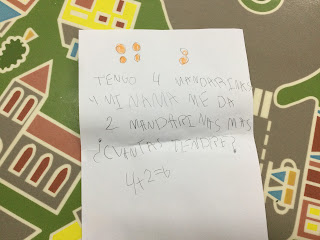 TENGO 4 MANDARINAS
Y MI MAMA ME DA
2 MANDARINAS MAS
¿CUANTAS TENDRE?
4+2=6